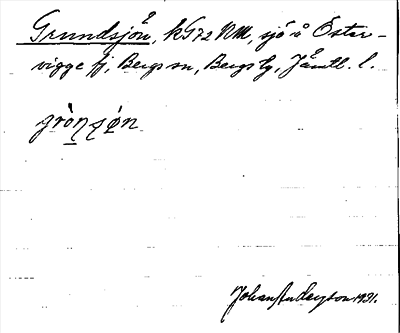 Grundsjön, kG72NM, sjö å Öster-
vigge fj, Bergs sn, Bergs tg, Jämtl. l.
Johan Anderson 1931.